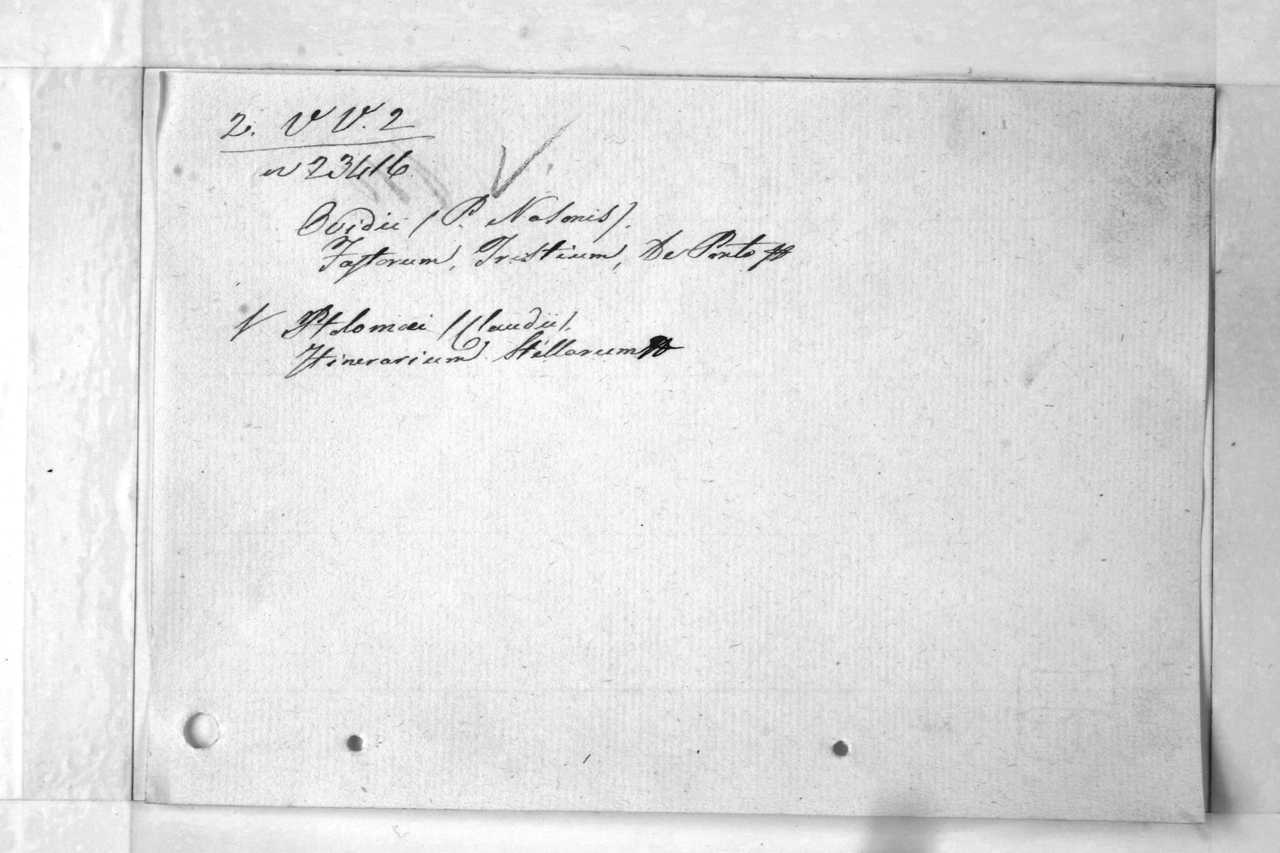 2. V V. 2
n 23416
Ovidii (P. Nasonis).
Fastorum, Tristium, De Ponto
V Ptolomæi (Claudii).
Itinerarium Stellarum